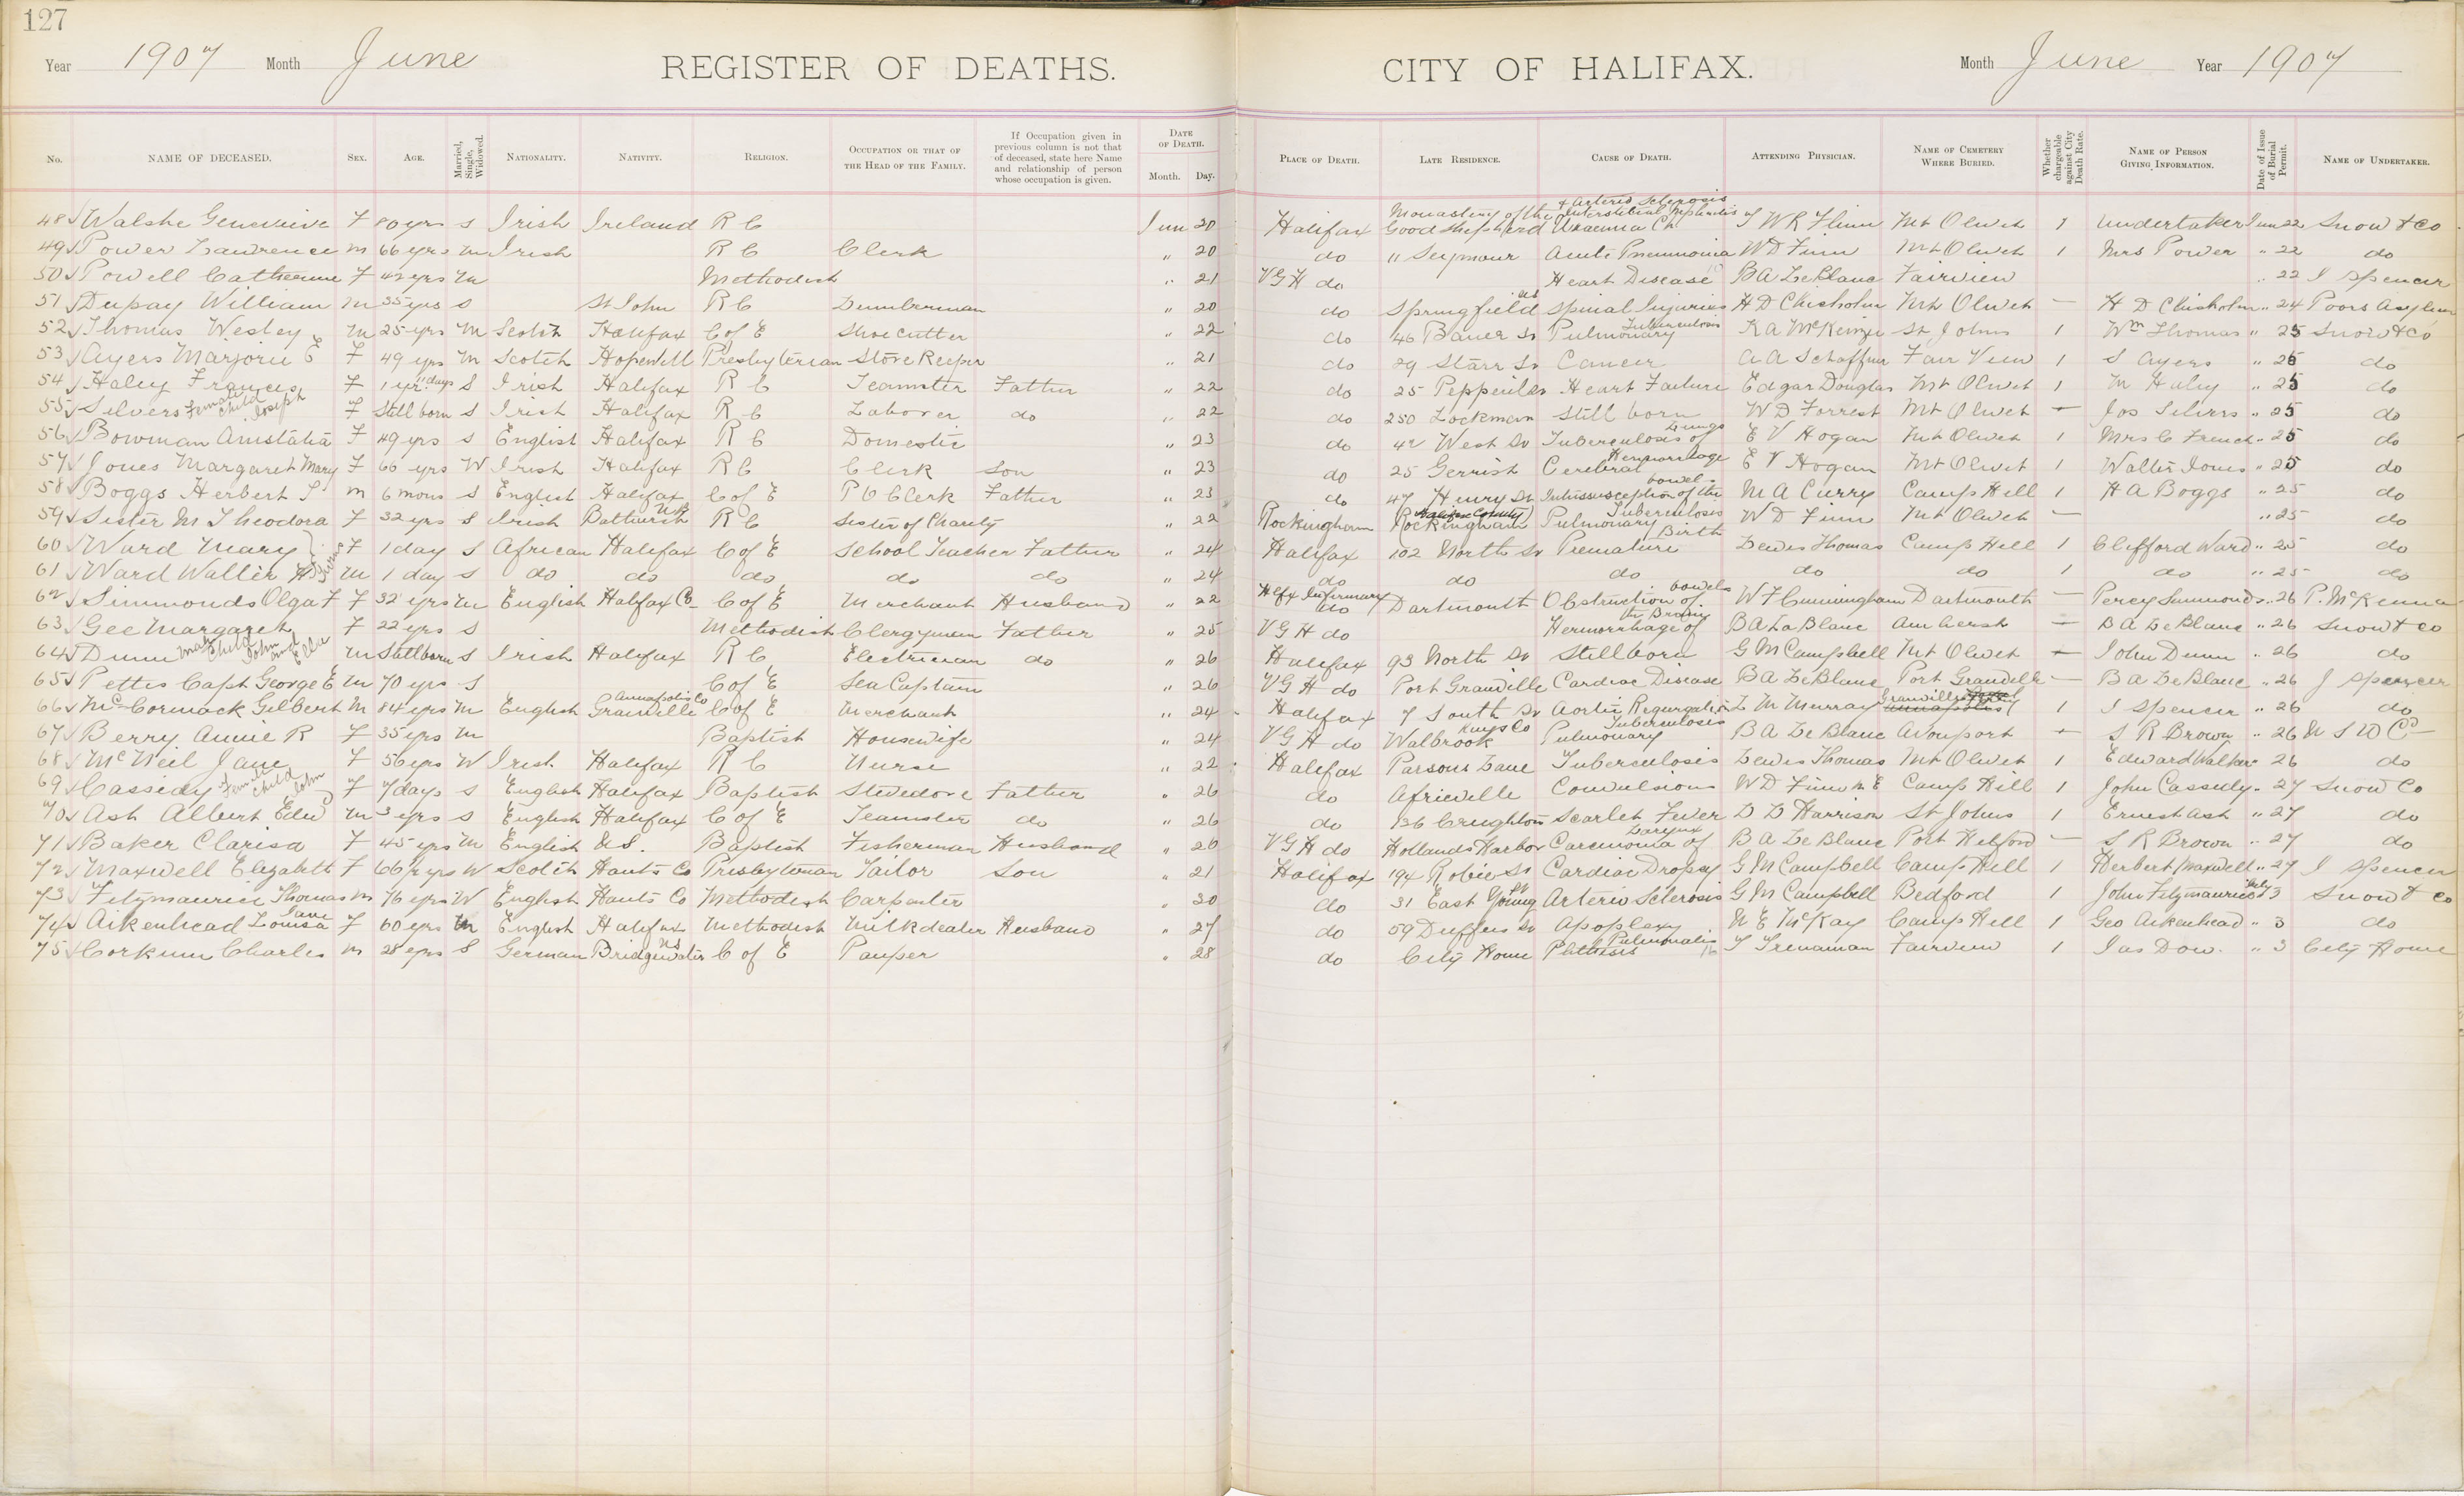 127
Year 1907 Month June REGISTER OF DEATHS. CITY OF HALIFAX. Month June Year 1907
No. NAME OF DECEASED. SEX. AGE. Married, Single, Widowed. NATIONALITY. NATIVITY. RELIGION. OCCUPATION OR THAT OF THE HEAD OF THE FAMILY. If Occupation given in previous column is not that of deceased, state here Name and relationship of person whose occupation is given. DATE OF DEATH. Month. Day. PLACE OF DEATH. LATE RESIDENCE. CAUSE OF DEATH. ATTENDING PHYSICIAN. NAME OF CEMETERY WHERE BURIED. Whether chargeable against City Death Rate. NAME OF PERSON GIVING INFORMATION. Date of Issue of Burial Permit. NAME OF UNDERTAKER.
48 Walshe Genevieve F 80 yrs S Irish Ireland R C Jun 20 Halifax Monastery of the Good Shepherd Uraemia Ch Interstitial Nephritis & Arterio Sclerosis W R Flinn Mt Olivet 1 Undertaker Jun 22 Snow & Co
49 Power Lawrence M 66 yrs M Irish R C Clerk " 20 do " Seymour Acute Pneumonia W D Finn Mt Olivet 1 Mrs Power " 22 do
50 Powell Catherine F 42 yrs M Methodist " 21 V G H do Heart Disease B A LeBlanc Fairview " 22 J Spencer
51 Dupay William M 35 yrs S St John R C Lumberman " 20 do Springfield Spinal Injuries H D Chisholm Mt Olivet — H D Chisholm " 24 Poors Asylum
52 Thomas Wesley M 25 yrs M Scotch Halifax C of E Shoe cutter " 22 do 46 Bauer St Pulmonary Tuberculosis K A McKenzie St Johns 1 Wm Thomas " 25 Snow & Co
53 Ayers Marjorie E F 49 yrs M Scotch Hopewell Presbyterian Store Keeper " 21 do 29 Starr St Cancer A A Schaffner Fair View 1 S Ayers " 25 do
54 Haley Frances F 1 yr 11 days S Irish Halifax R C Teamster Father " 22 do 25 Pepperell St Heart Failure Edgar Douglas Mt Olivet 1 M Haley " 25 do
55 Silvers Female child Joseph F Still born S Irish Halifax R C Laborer do " 22 do 250 Lockman Still born W D Forrest Mt Olivet — Jos Silvers " 25 do
56 Bowman Anistatia F 49 yrs S English Halifax R C Domestic " 23 do 42 West St Tuberculosis of Lungs E V Hogan Mt Olivet 1 Mrs C French " 25 do
57 Jones Margaret Mary F 66 yrs W Irish Halifax R C Clerk Son " 23 do 25 Gerrish Cerebral Hemorrhage E V Hogan Mt Olivet 1 Walter Jones " 25 do
58 Boggs Herbert S M 6 mons S English Halifax C of E P O Clerk Father " 23 do 47 Henry St Intussusception of the bowels M A Curry Camp Hill 1 H A Boggs " 25 do
59 Sister M Theodora F 32 yrs S Irish Bathurst NB R C Sister of Charity " 22 Rockingham Rockingham (Halifax County) Pulmonary Tuberculosis W D Finn Mt Olivet — " 25 do
60 Ward Mary } Twins F 1 day S African Halifax C of E School Teacher Father " 24 Halifax 102 North St Premature Birth Lewis Thomas Camp Hill 1 Clifford Ward " 25 do
61 Ward Walter H M 1 day S do do do do do " 24 do do do do do 1 do " 25 do
62 Simmonds Olga F F 32 yrs M English Halifax Co C of E Merchant Husband " 22 Hlfx Infirmary do Dartmouth Obstruction of bowels W F Cunningham Dartmouth — Percy Simmonds " 26 P. McKenna
63 Gee Margaret F 22 yrs S Methodist Clergyman Father " 25 V G H do Hermorrhage of the Brain B A LaBlanc Amherst — B A LeBlanc " 26 Snow & Co
64 Dunn Male Child John and Ella M Stillborn S Irish Halifax R C Electrician do " 26 Halifax 93 North St Stillborn G M Campbell Mt Olivet — John Dunn " 26 do
65 Pettis Capt George E M 70 yrs S C of E Sea Captain " 26 V G H do Port Granville Cardiac Disease B A LeBlanc Port Granville — B A LeBlanc " 26 J Spencer
66 McCormack Gilbert M 84 yrs M English Granville Annapolis Co C of E Merchant " 24 Halifax 7 South St Aortic Regurgation L M Murray Granville Ferry 1 J Spencer " 26 do
67 Berry Annie R F 35 yrs M Baptist Housewife " 24 V G H do Walbrook Kings Co Pulmonary Tuberculosis B A LeBlanc Avonport — S R Brown " 26 N S U Co
68 McNeil Jane F 56 yrs W Irish Halifax R C Nurse " 22 Halifax Parsons Lane Tuberculosis Lewis Thomas Mt Olivet 1 Edward Walker 26 do
69 Cassedy Female child John F 7 days S English Halifax Baptist Stevedore Father " 26 do Africville Convulsions W D Finn M E Camp Hill 1 John Cassedy " 27 Snow Co
70 Ash Albert Edw M 3 yrs S English Halifax C of E Teamster do " 26 do 136 Creighton Scarlet Fever D D Harrison St Johns 1 Ernest Ash " 27 do
71 Baker Clarisa F 45 yrs M English U.S. Baptist Fisherman Husband " 26 V G H do Hollands Harbor Carcinoma of Larynx B A LeBlanc Port Helford — S R Brown " 27 do
72 Maxwell Elizabeth F 66 yrs W Scotch Hants Co Presbyterian Tailor Son " 21 Halifax 194 Robie St Cardiac Dropsy G M Campbell Camp Hill 1 Herbert Maxwell " 27 J Spencer
73 Fitzmaurice Thomas M 76 yrs W English Hants Co Methodist Carpenter " 30 do 31 East Young St Arterio Sclerosis G M Campbell Bedford 1 John Fitzmaurice July 3 Snow & Co
74 Aikenhead Louisa Jane F 60 yrs M English Halifax Methodist Milkdealer Husband " 27 do 59 Duffus St Apoplexy N E McKay Camp Hill 1 Geo Aikenhead " 3 do
75 Corkum Charles M 28 yrs S German Bridgewater NS C of E Pauper " 28 do City Home Phthisis Pulmonalis T Trenaman Fairview 1 Jas Dow. " 3 City Home